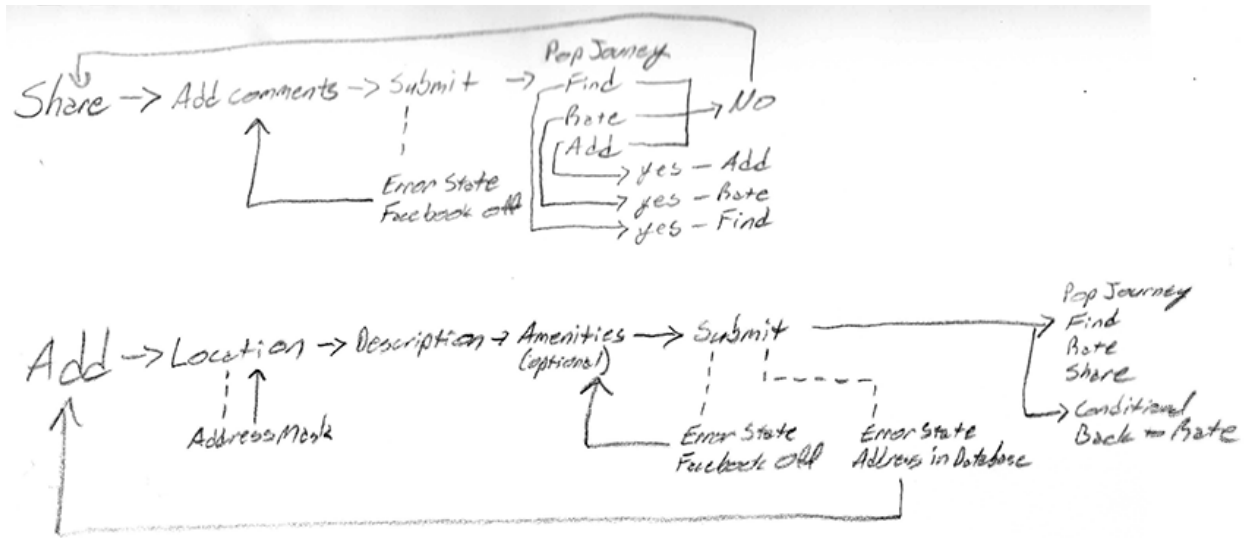 Pop Journey
Share -> Add comments -> Submit -> Find
Rate
Add
No
yes - Add
yes - Rate
yes - Find
Error State
Facebook off
Add -> Location -> Description -> Amenities -> Submit
(optional)
Address Mask
Error State
Facebook off
Error State
Address in Database
Pop Journey
Find
Rate
Share
Conditional
Back to Rate